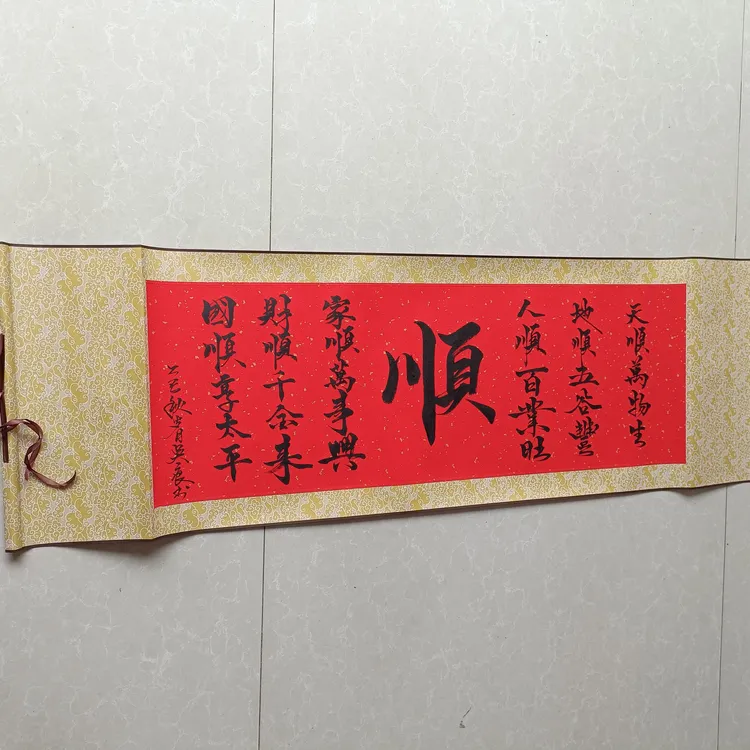 天順萬物生
地順五谷豐
人順百業旺
順
家順萬事興
財順千金來
國順享太平
乙巳秋